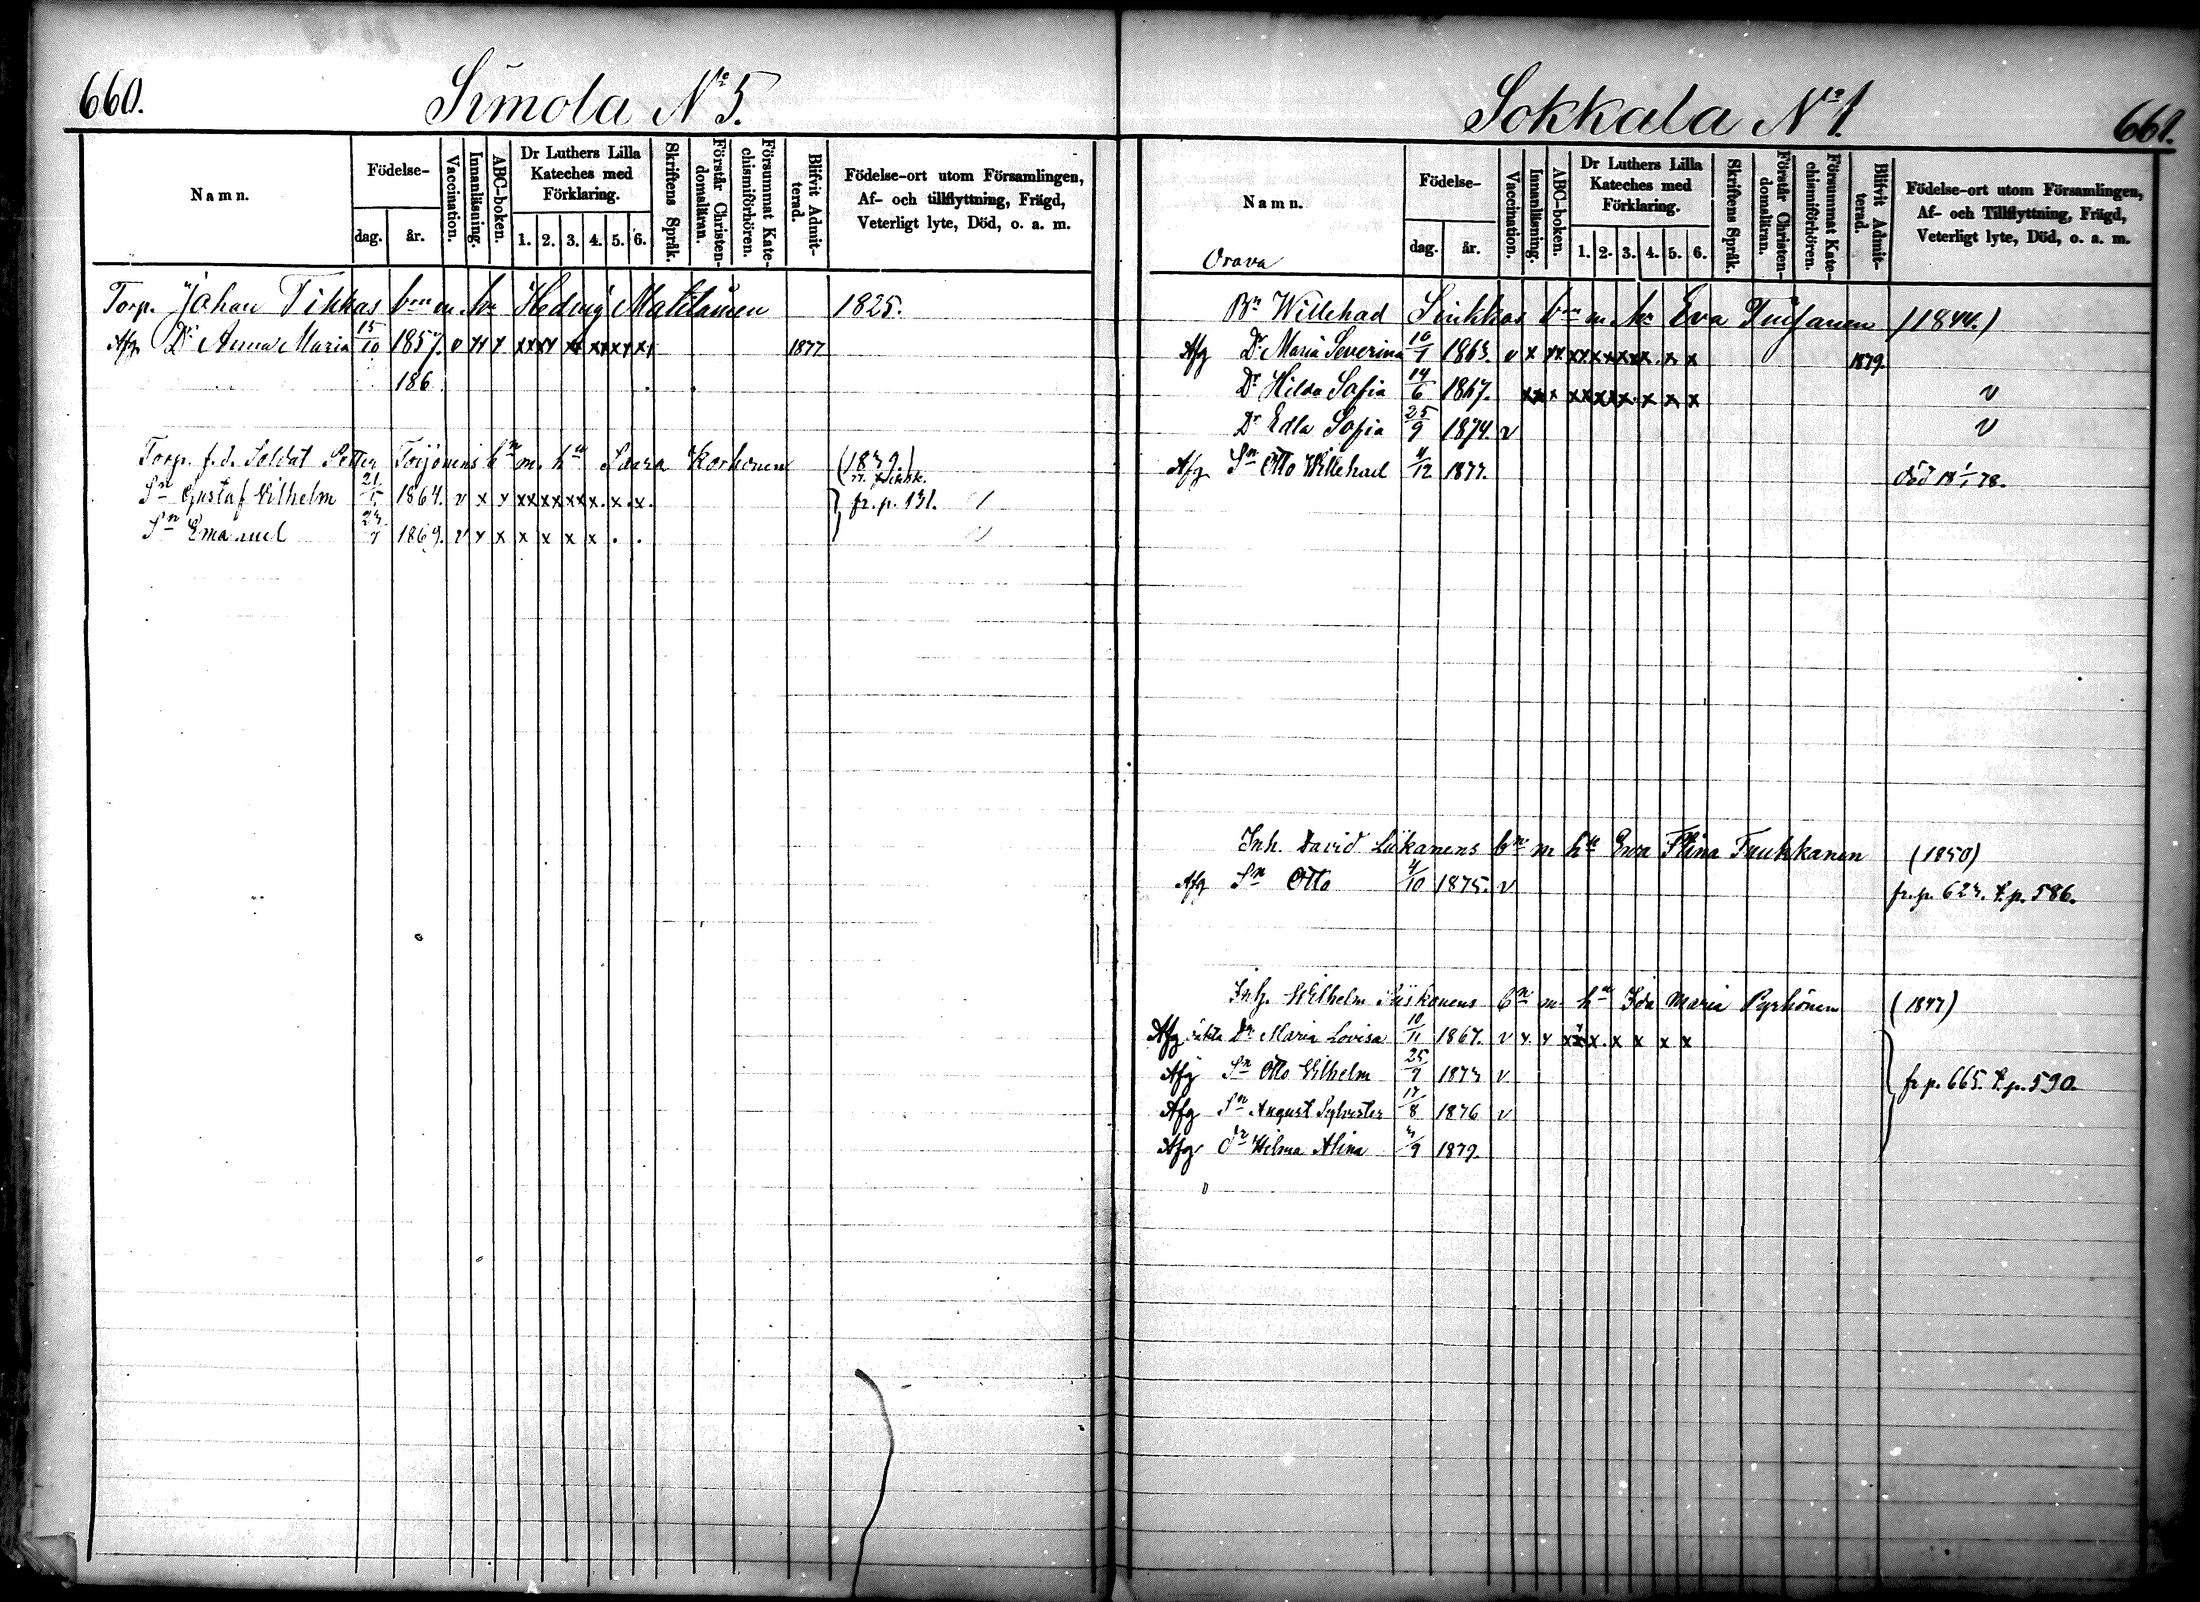 660.
Simola No 5.
Namn.
Födelse-
dag.
år.
Vaccination.
Innanläsning.
ABC-boken.
Dr Luthers Lilla
Kateches med
Förklaring.
1. 2. 3. 4. 5. 6.
Skriftens Språk.
Förstår Christen-
domsläran.
Försummat Kate-
chismiförhören.
Blifvit Admit-
terad.
Födelse-ort utom Församlingen,
Af- och tillflyttning, Frägd,
Veterligt lyte, Död, o. a. m.
Torp. Johan Tikkas bn m. h. Hedvig Matilainen 1825.
Afg Dr Anna Maria 15/10 1857. v x x x x x x x x x x 1877
186
Torp. f.d. Soldat Petter Toijonens bn m. hu Saara Korhonen (1839.)
Sn Gustaf Vilhelm 1864. v x x x x x x x x x x. x. fr. p. 131.
Sn Emanuel 1869. v x x x x x x . .
Sokkala No 1.
661.
Namn.
Födelse-
dag.
år.
Vaccination.
Innanläsning.
ABC-boken.
Dr Luthers Lilla
Kateches med
Förklaring.
1. 2. 3. 4. 5. 6.
Skriftens Språk.
Förstår Christen-
domsläran.
Försummat Kate-
chismiförhören.
Blifvit Admit-
terad.
Födelse-ort utom Församlingen,
Af- och Tillflyttning, Frägd,
Veterligt lyte, Död, o. a. m.
Orava
Bn Willehad Sinkkos bn m h Eva (1844.)
Afg Dr Maria Severina 10/1 1863. v x x x x x x x x x x x 1879.
Dr Hilda Sofia 14/6 1867. x x x x x x x x x x x v
Dr Edla Sofia 25/9 1874. v v
Afg Sn Otto Willehad 4/12 1877. Död 18 1/1 78.
Inh. David Liikanens bn m hu Eva Stina Tuukkanen (1850)
Afg Sn Otto 4/10 1875. v fr. p. 623. t. p. 586.
Inh. Wilhelm bn m hu Ida Maria Pyrhönen (1847)
Afg oäkta Dr Maria Lovisa 10/11 1867. v x x x x x. x x x x
Afg Sn Otto Vilhelm 25/9 1873 v fr p. 665. t. p. 590.
Afg Sn August Sylvester 17/8 1876 v
Afg Dr Hilma Alina 3/9 1879.